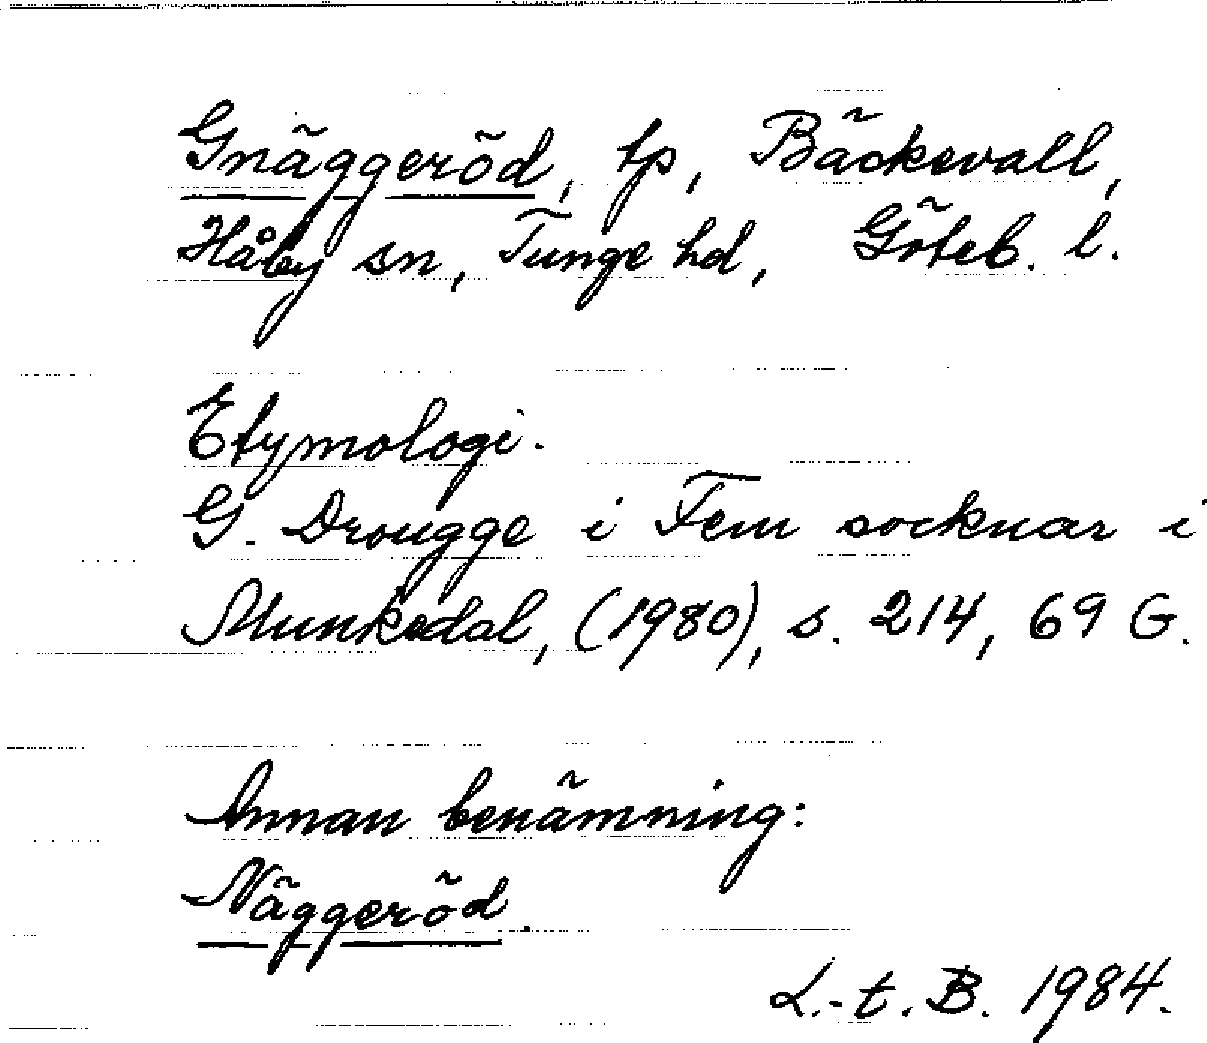 Gnäggeröd, tp, Bäckevall,
Håby sn, Tunge hd, Göteb. l.
Etymologi.
G. Drougge i Fem socknar i
Munkedal, (1980), s. 214, 69 G.
Annan benämning:
Näggeröd.
L.-t. B. 1984.